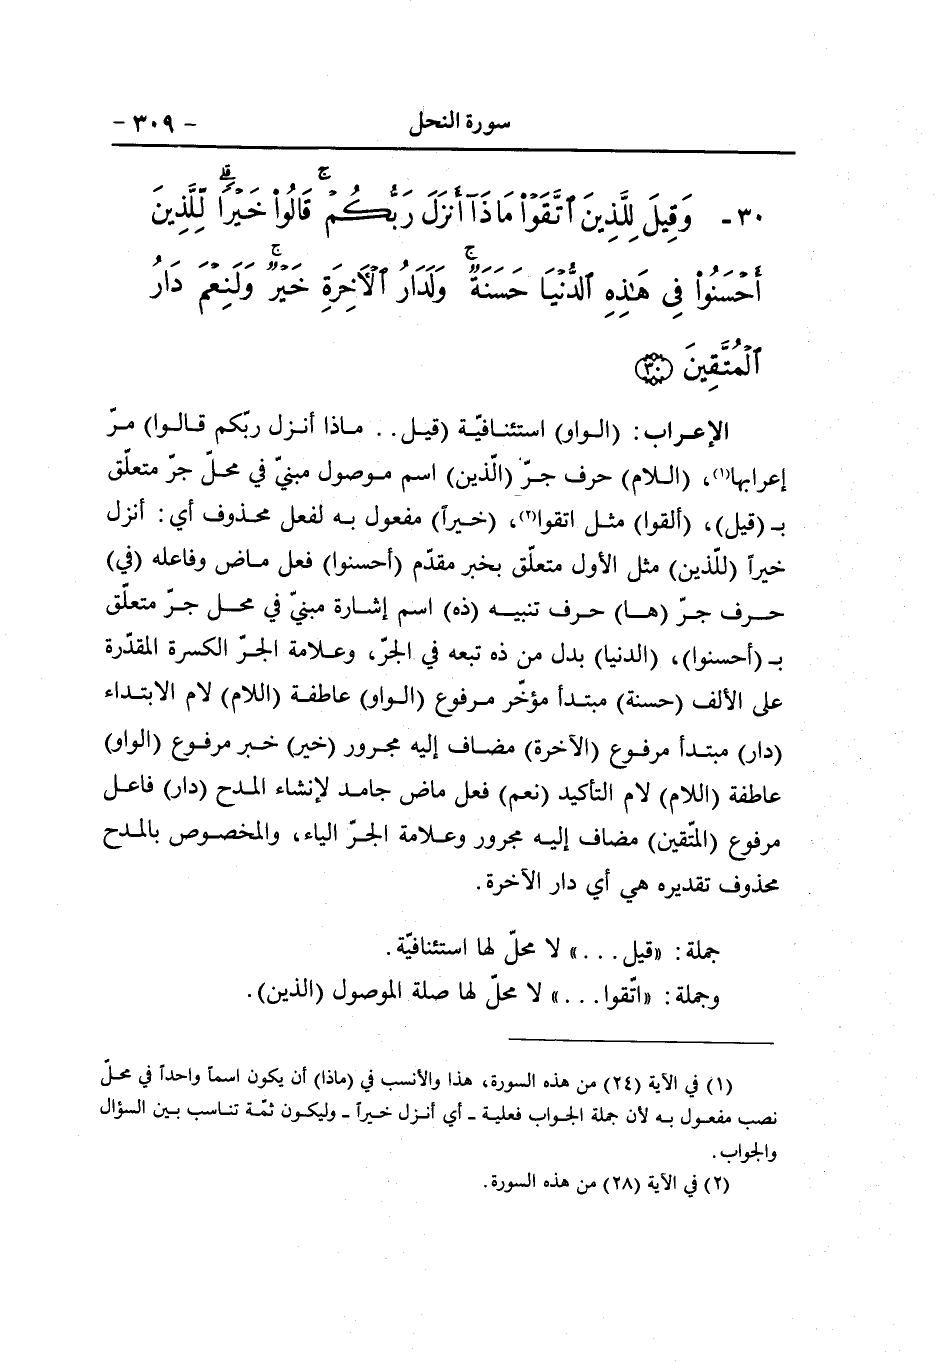 سورة النحل - ٣٠٩ -
٣٠ - وَقِيلَ لِلَّذِينَ ٱتَّقَوْا۟ مَاذَآ أَنزَلَ رَبُّكُمْ ۚ قَالُوا۟ خَيْرًا ۗ لِّلَّذِينَ
أَحْسَنُوا۟ فِى هَـٰذِهِ ٱلدُّنْيَا حَسَنَةٌ ۚ وَلَدَارُ ٱلْأَخِرَةِ خَيْرٌ ۚ وَلَنِعْمَ دَارُ
ٱلْمُتَّقِينَ ﴿٣٠﴾
الإعراب: (الواو) استئنافيّة (قيل.. ماذا أنزل ربّكم قالوا) مرّ
إعرابها(١)، (اللام) حرف جرّ (الّذين) اسم موصول مبنيّ في محلّ جرّ متعلّق
بـ (قيل)، (ألقوا) مثل اتقوا(٢)، (خيراً) مفعول به لفعل محذوف أي: أنزل
خيراً (للّذين) مثل الأول متعلّق بخبر مقدّم (أحسنوا) فعل ماض وفاعله (في)
حرف جرّ (ها) حرف تنبيه (ذه) اسم إشارة مبنيّ في محل جرّ متعلّق
بـ (أحسنوا)، (الدنيا) بدل من ذه تبعه في الجرّ، وعلامة الجرّ الكسرة المقدّرة
على الألف (حسنة) مبتدأ مؤخّر مرفوع (الواو) عاطفة (اللام) لام الابتداء
(دار) مبتدأ مرفوع (الآخرة) مضاف إليه مجرور (خير) خبر مرفوع (الواو)
عاطفة (اللام) لام التأكيد (نعم) فعل ماض جامد لإنشاء المدح (دار) فاعل
مرفوع (المتّقين) مضاف إليه مجرور وعلامة الجرّ الياء، والمخصوص بالمدح
محذوف تقديره هي أي دار الآخرة.
جملة: «قيل...» لا محلّ لها استئنافيّة.
وجملة: «اتّقوا...» لا محلّ لها صلة الموصول (الذين).
(١) في الآية (٢٤) من هذه السورة، هذا والأنسب في (ماذا) أن يكون اسماً واحداً في محلّ
نصب مفعول به لأن جملة الجواب فعلية - أي أنزل خيراً - وليكون ثمّة تناسب بين السؤال
والجواب.
(٢) في الآية (٢٨) من هذه السورة.